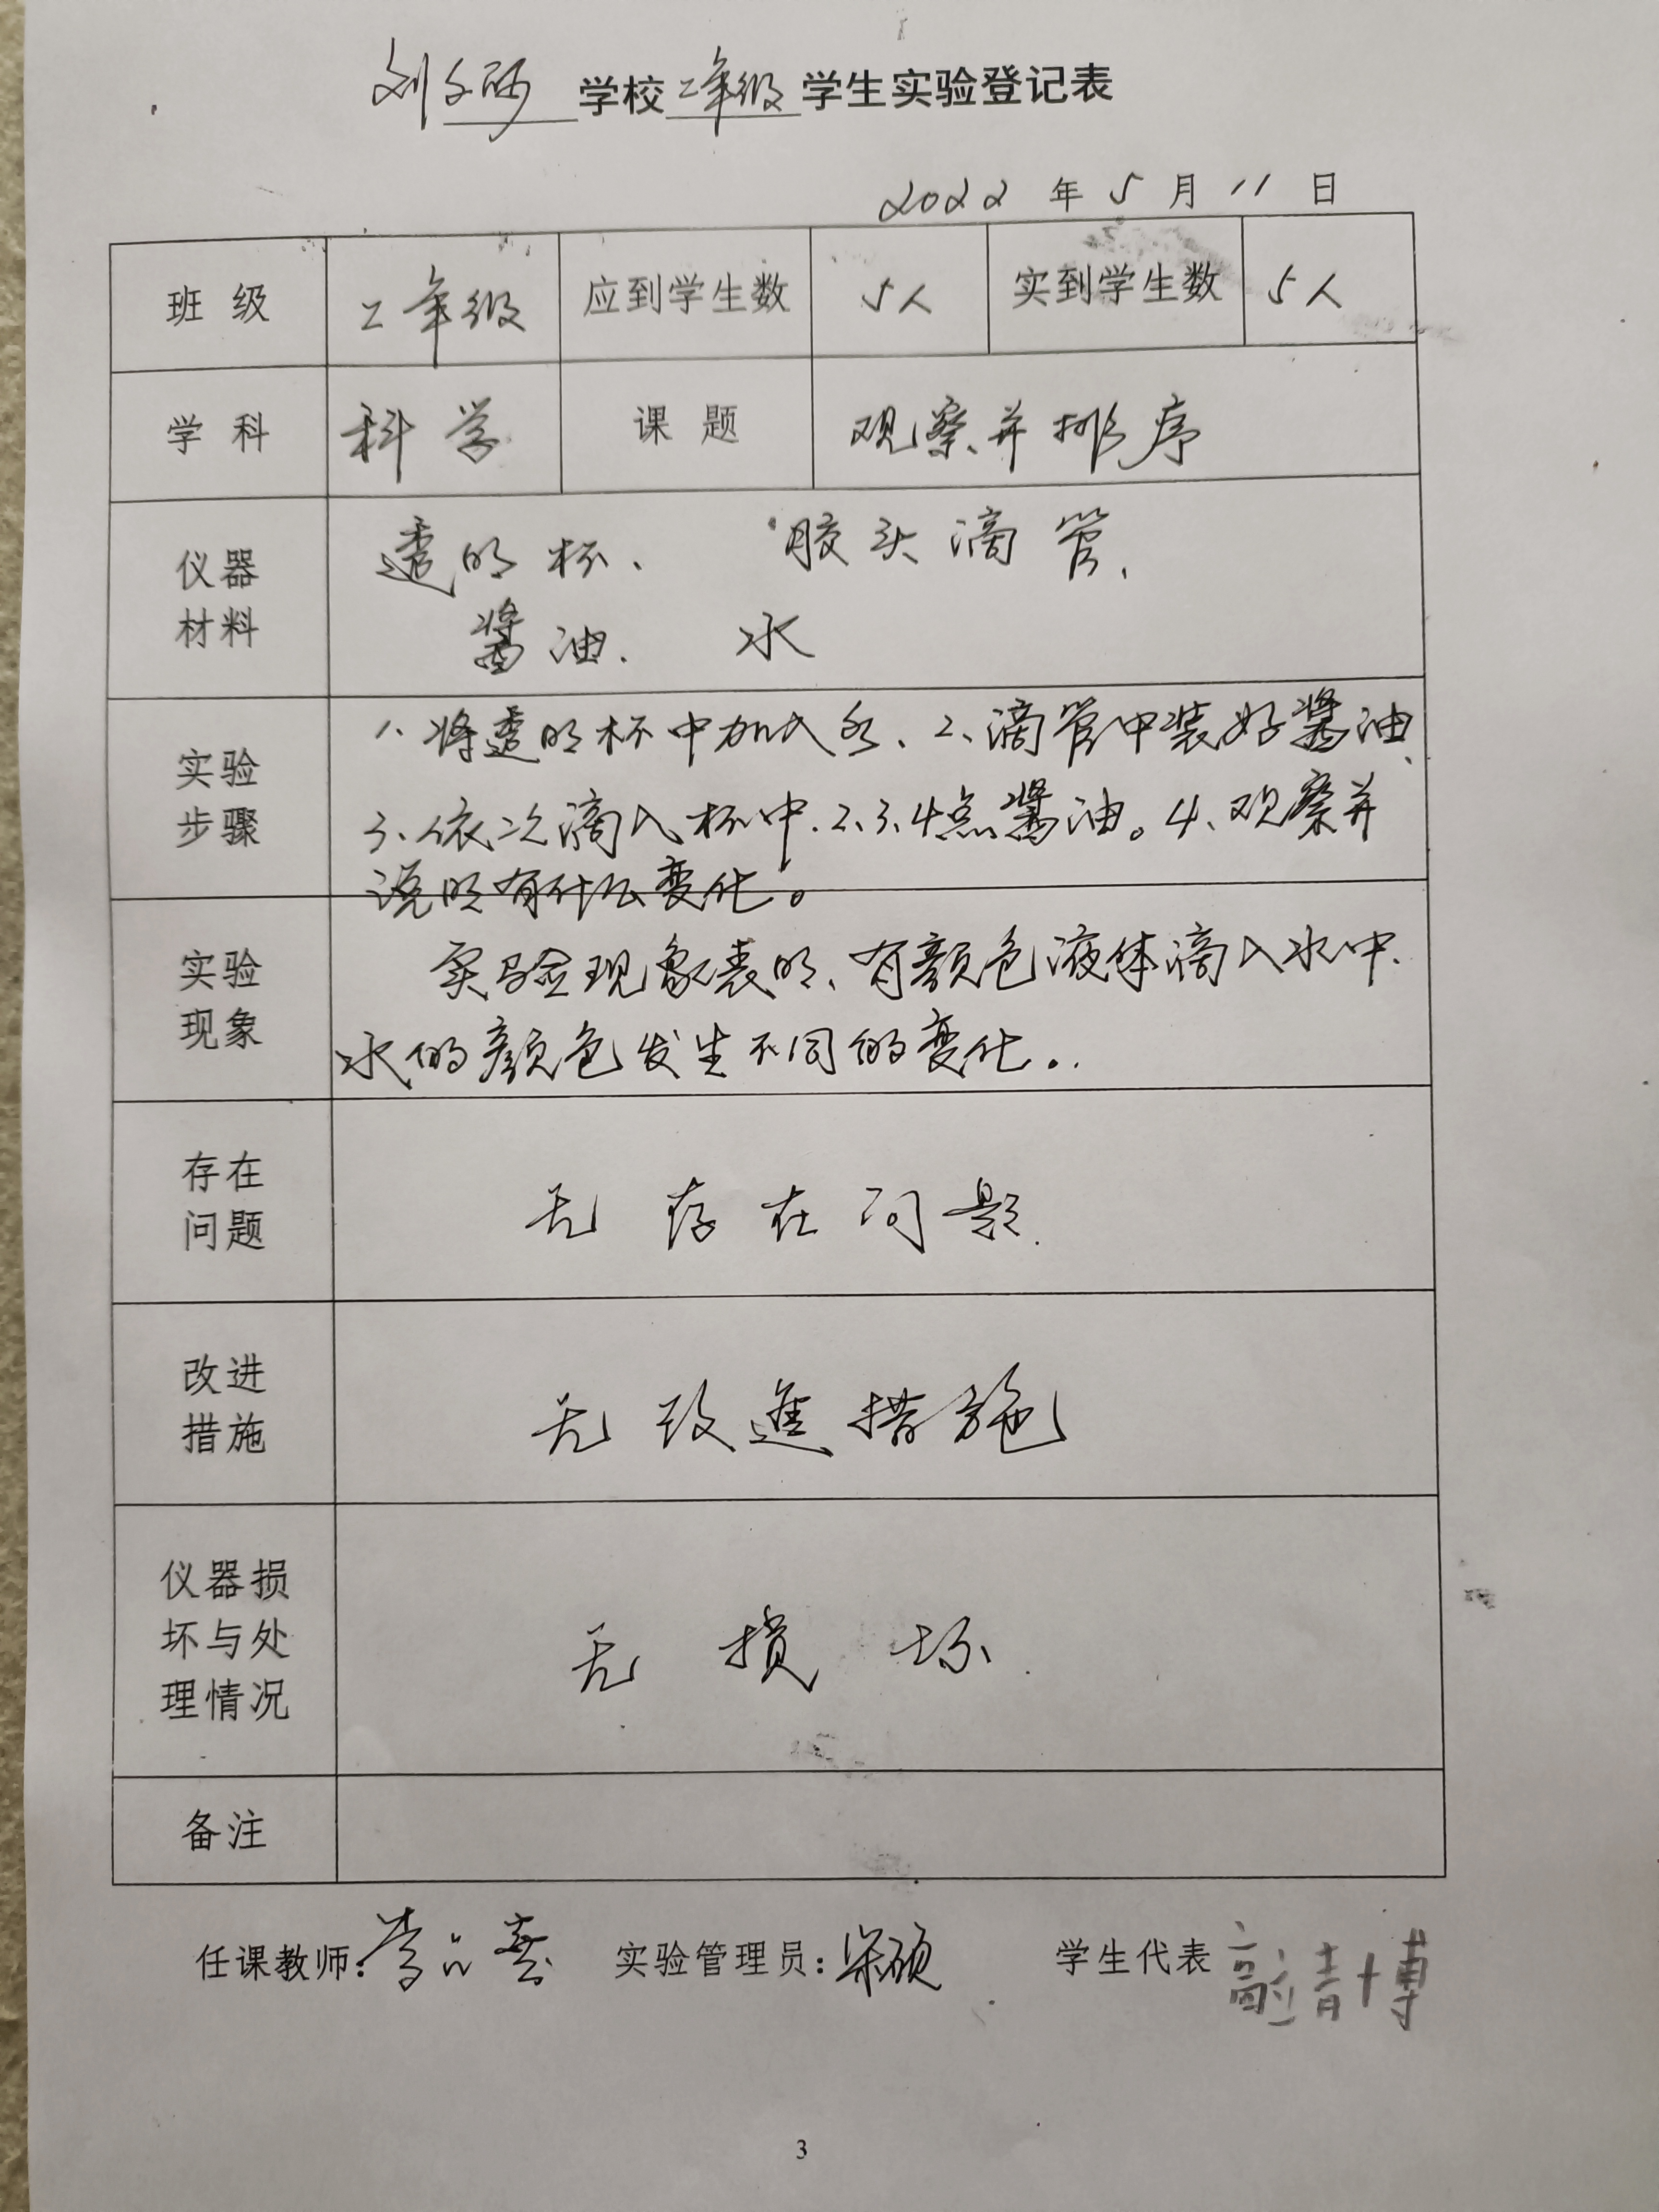 学校二年级学生实验登记表
2022 年 5 月 11 日
班 级 二年级 应到学生数 5人 实到学生数 5人
学 科 科学 课 题 观察并排序
仪器
材料
透明杯、 胶头滴管、
酱油. 水
实验
步骤
1、将透明杯中加入水、2、滴管中装好酱油、
3、依次滴入杯中.2、3、4点酱油。4、观察并
说明有什么变化。
实验
现象
实验现象表明、有颜色液体滴入水中.
水的颜色发生不同的变化..
存在
问题
无存在问题.
改进
措施
无改進措施
仪器损
坏与处
理情况
无损坏.
备注
任课教师: 实验管理员: 学生代表
3